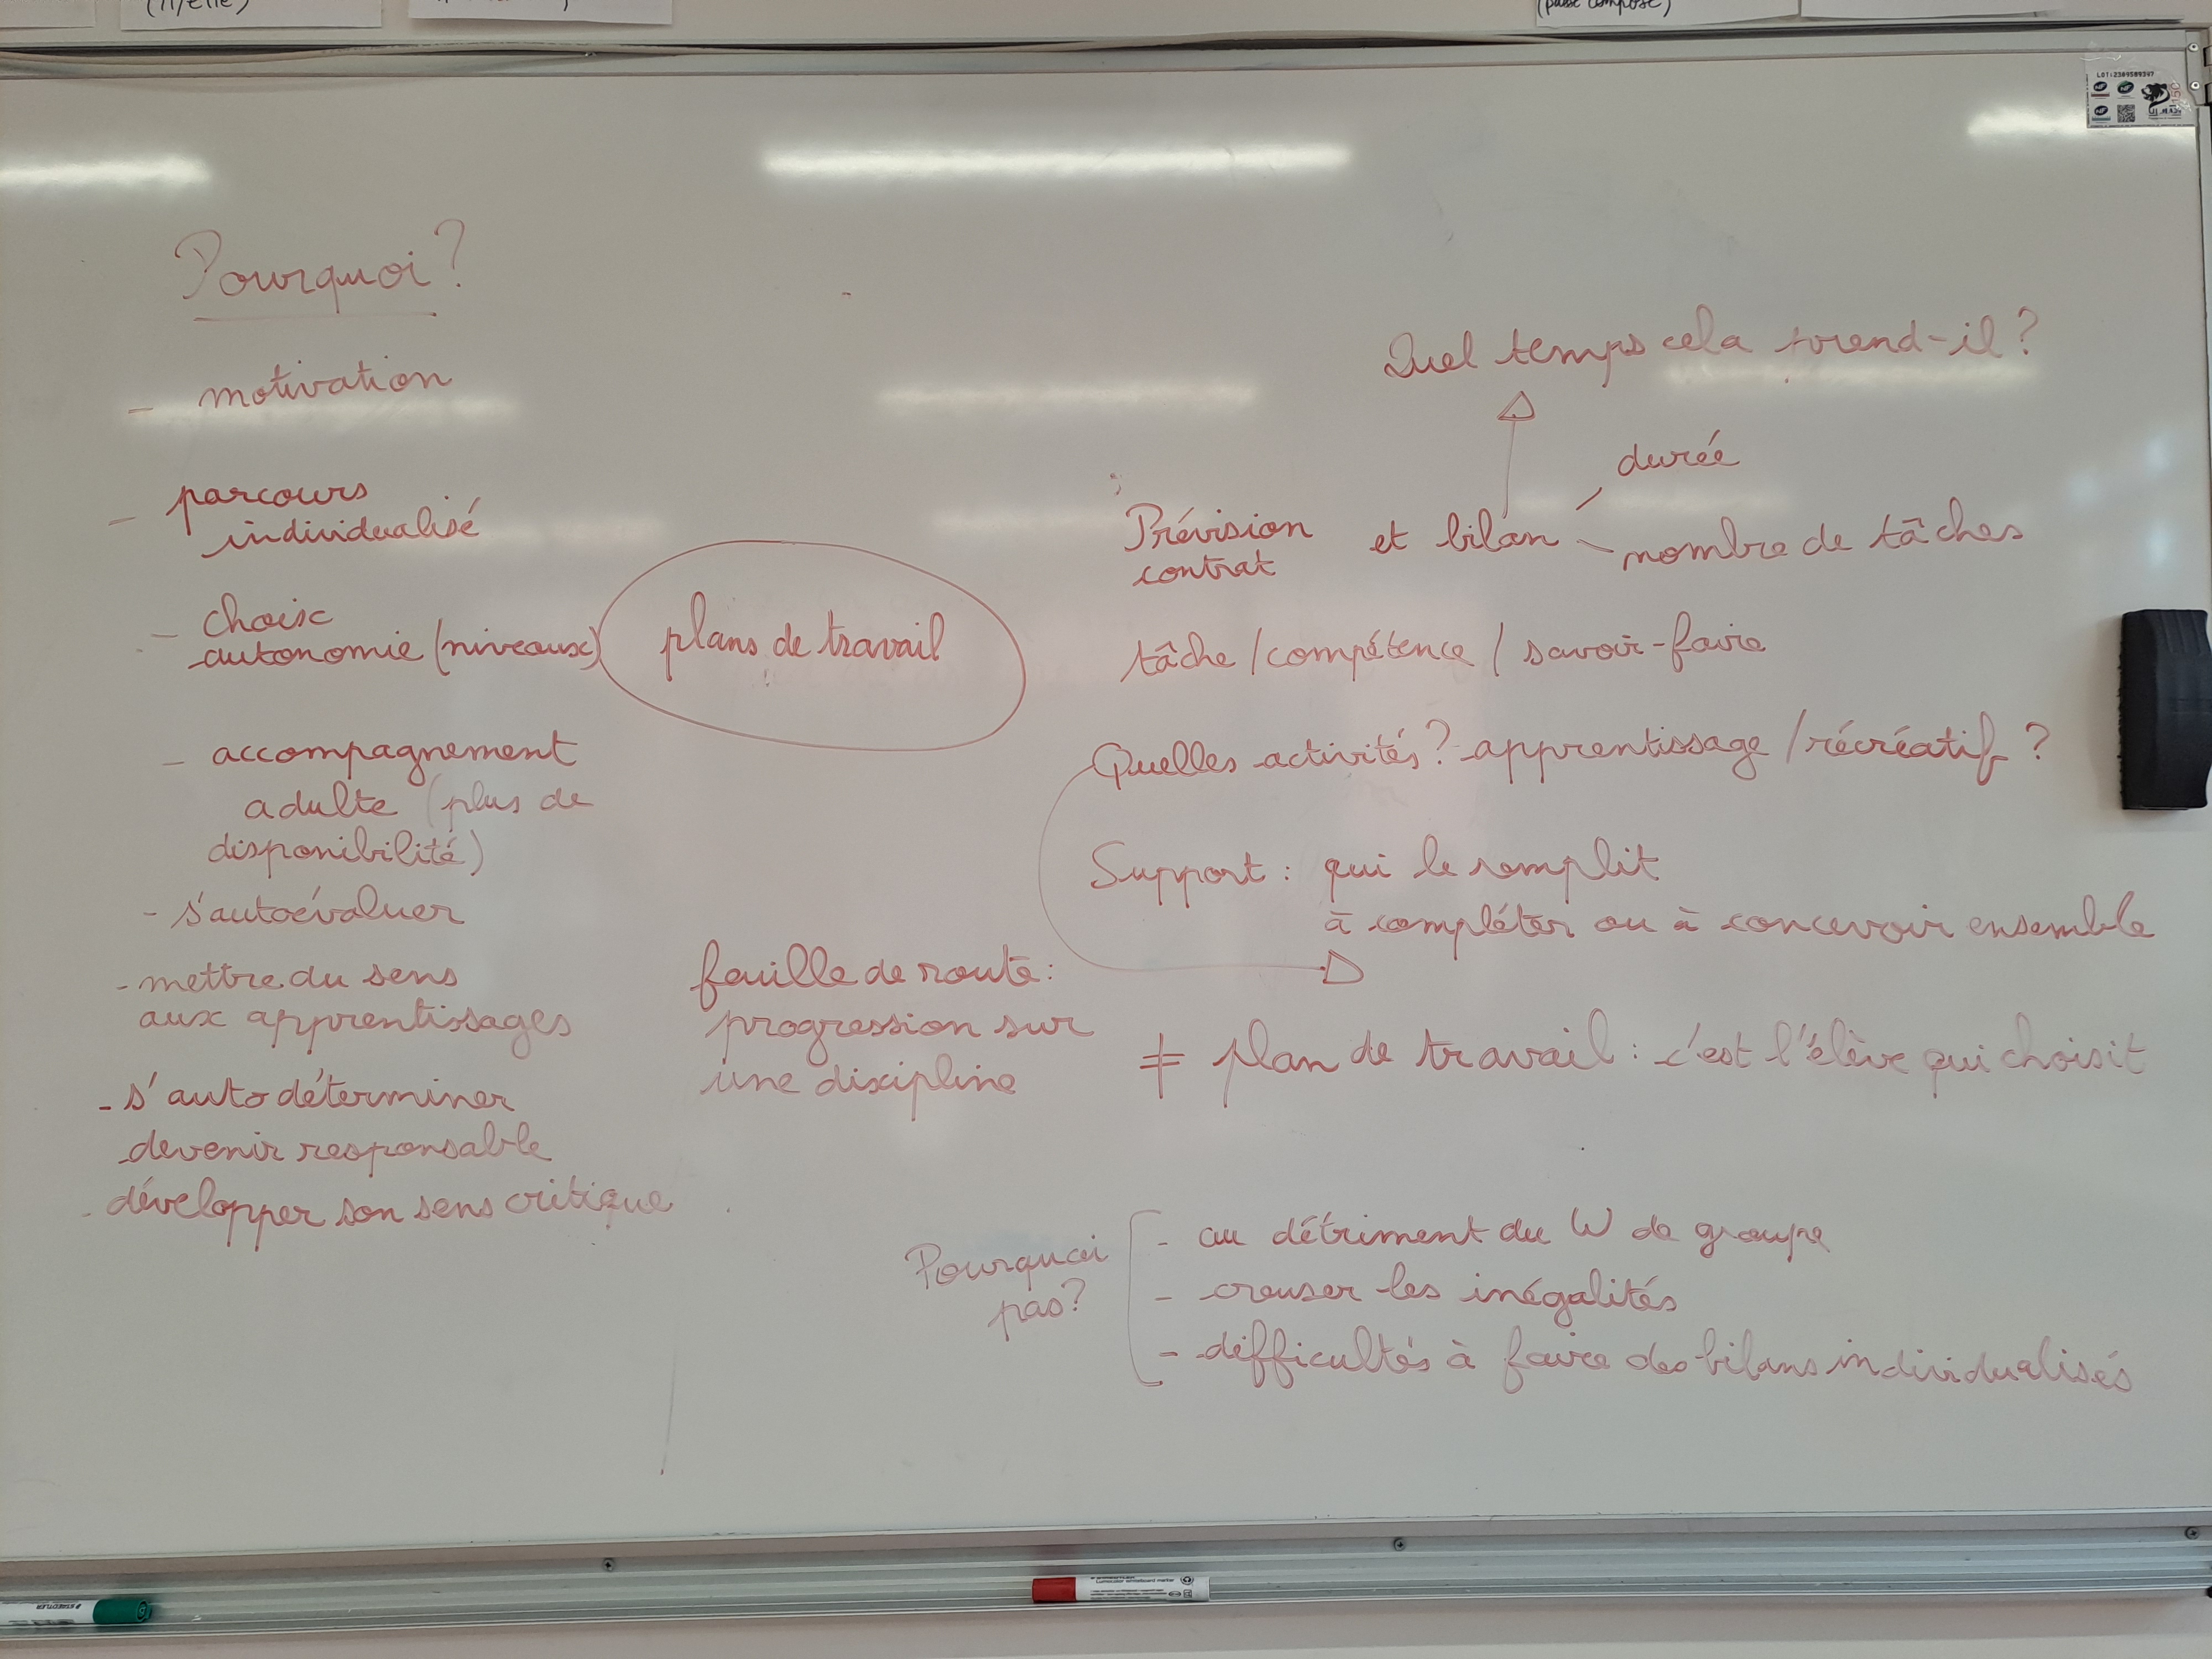 (il/elle)
(passé composé)
LOT:2309589347
Pourquoi?
- motivation
- parcours
individualisé
- choix
autonomie (niveaux)
- accompagnement
adulte (plus de
disponibilité)
- s'autoévaluer
- mettre du sens
aux apprentissages
- s'autodéterminer
devenir responsable
- développer son sens critique
plans de travail
Quel temps cela prend-il?
durée
Prévision et bilan
contrat
nombre de tâches
tâche / compétence / savoir-faire
Quelles activités? apprentissage / récréatif?
Support : qui le remplit
à compléter ou à concevoir ensemble
feuille de route :
progression sur
une discipline
≠ plan de travail : c'est l'élève qui choisit
Pourquoi
pas?
- au détriment du W de groupe
- creuser les inégalités
- difficultés à faire des bilans individualisés
STAEDTLER